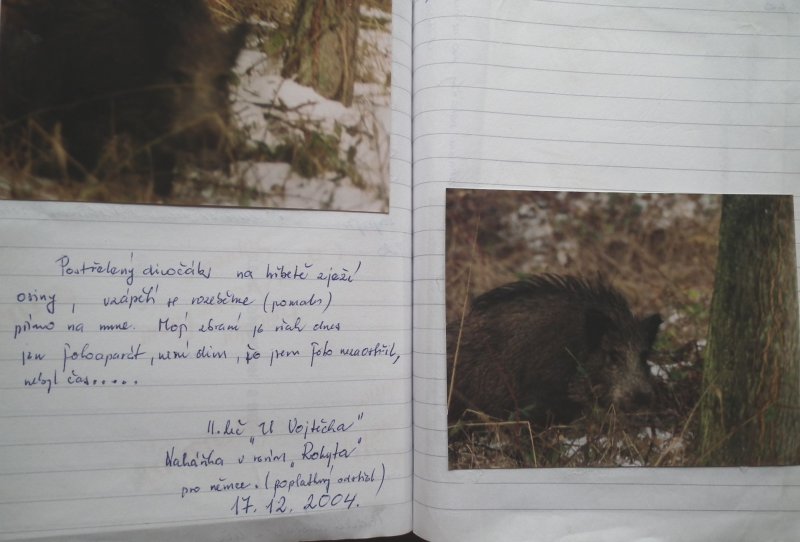 Postřelený divočák na hřbetě zježí
osiny, vzápětí se rozeběhne (pomalu)
přímo na mne. Mojí zbraní je však dnes
jen fotoaparát, není divu, že jsem foto nezaostřil,
nebyl čas.....
II. leč „U Vojtěcha"
Naháňka v revíru „Rokyta"
pro němce. (poplatkový odstřel)
17. 12. 2004.